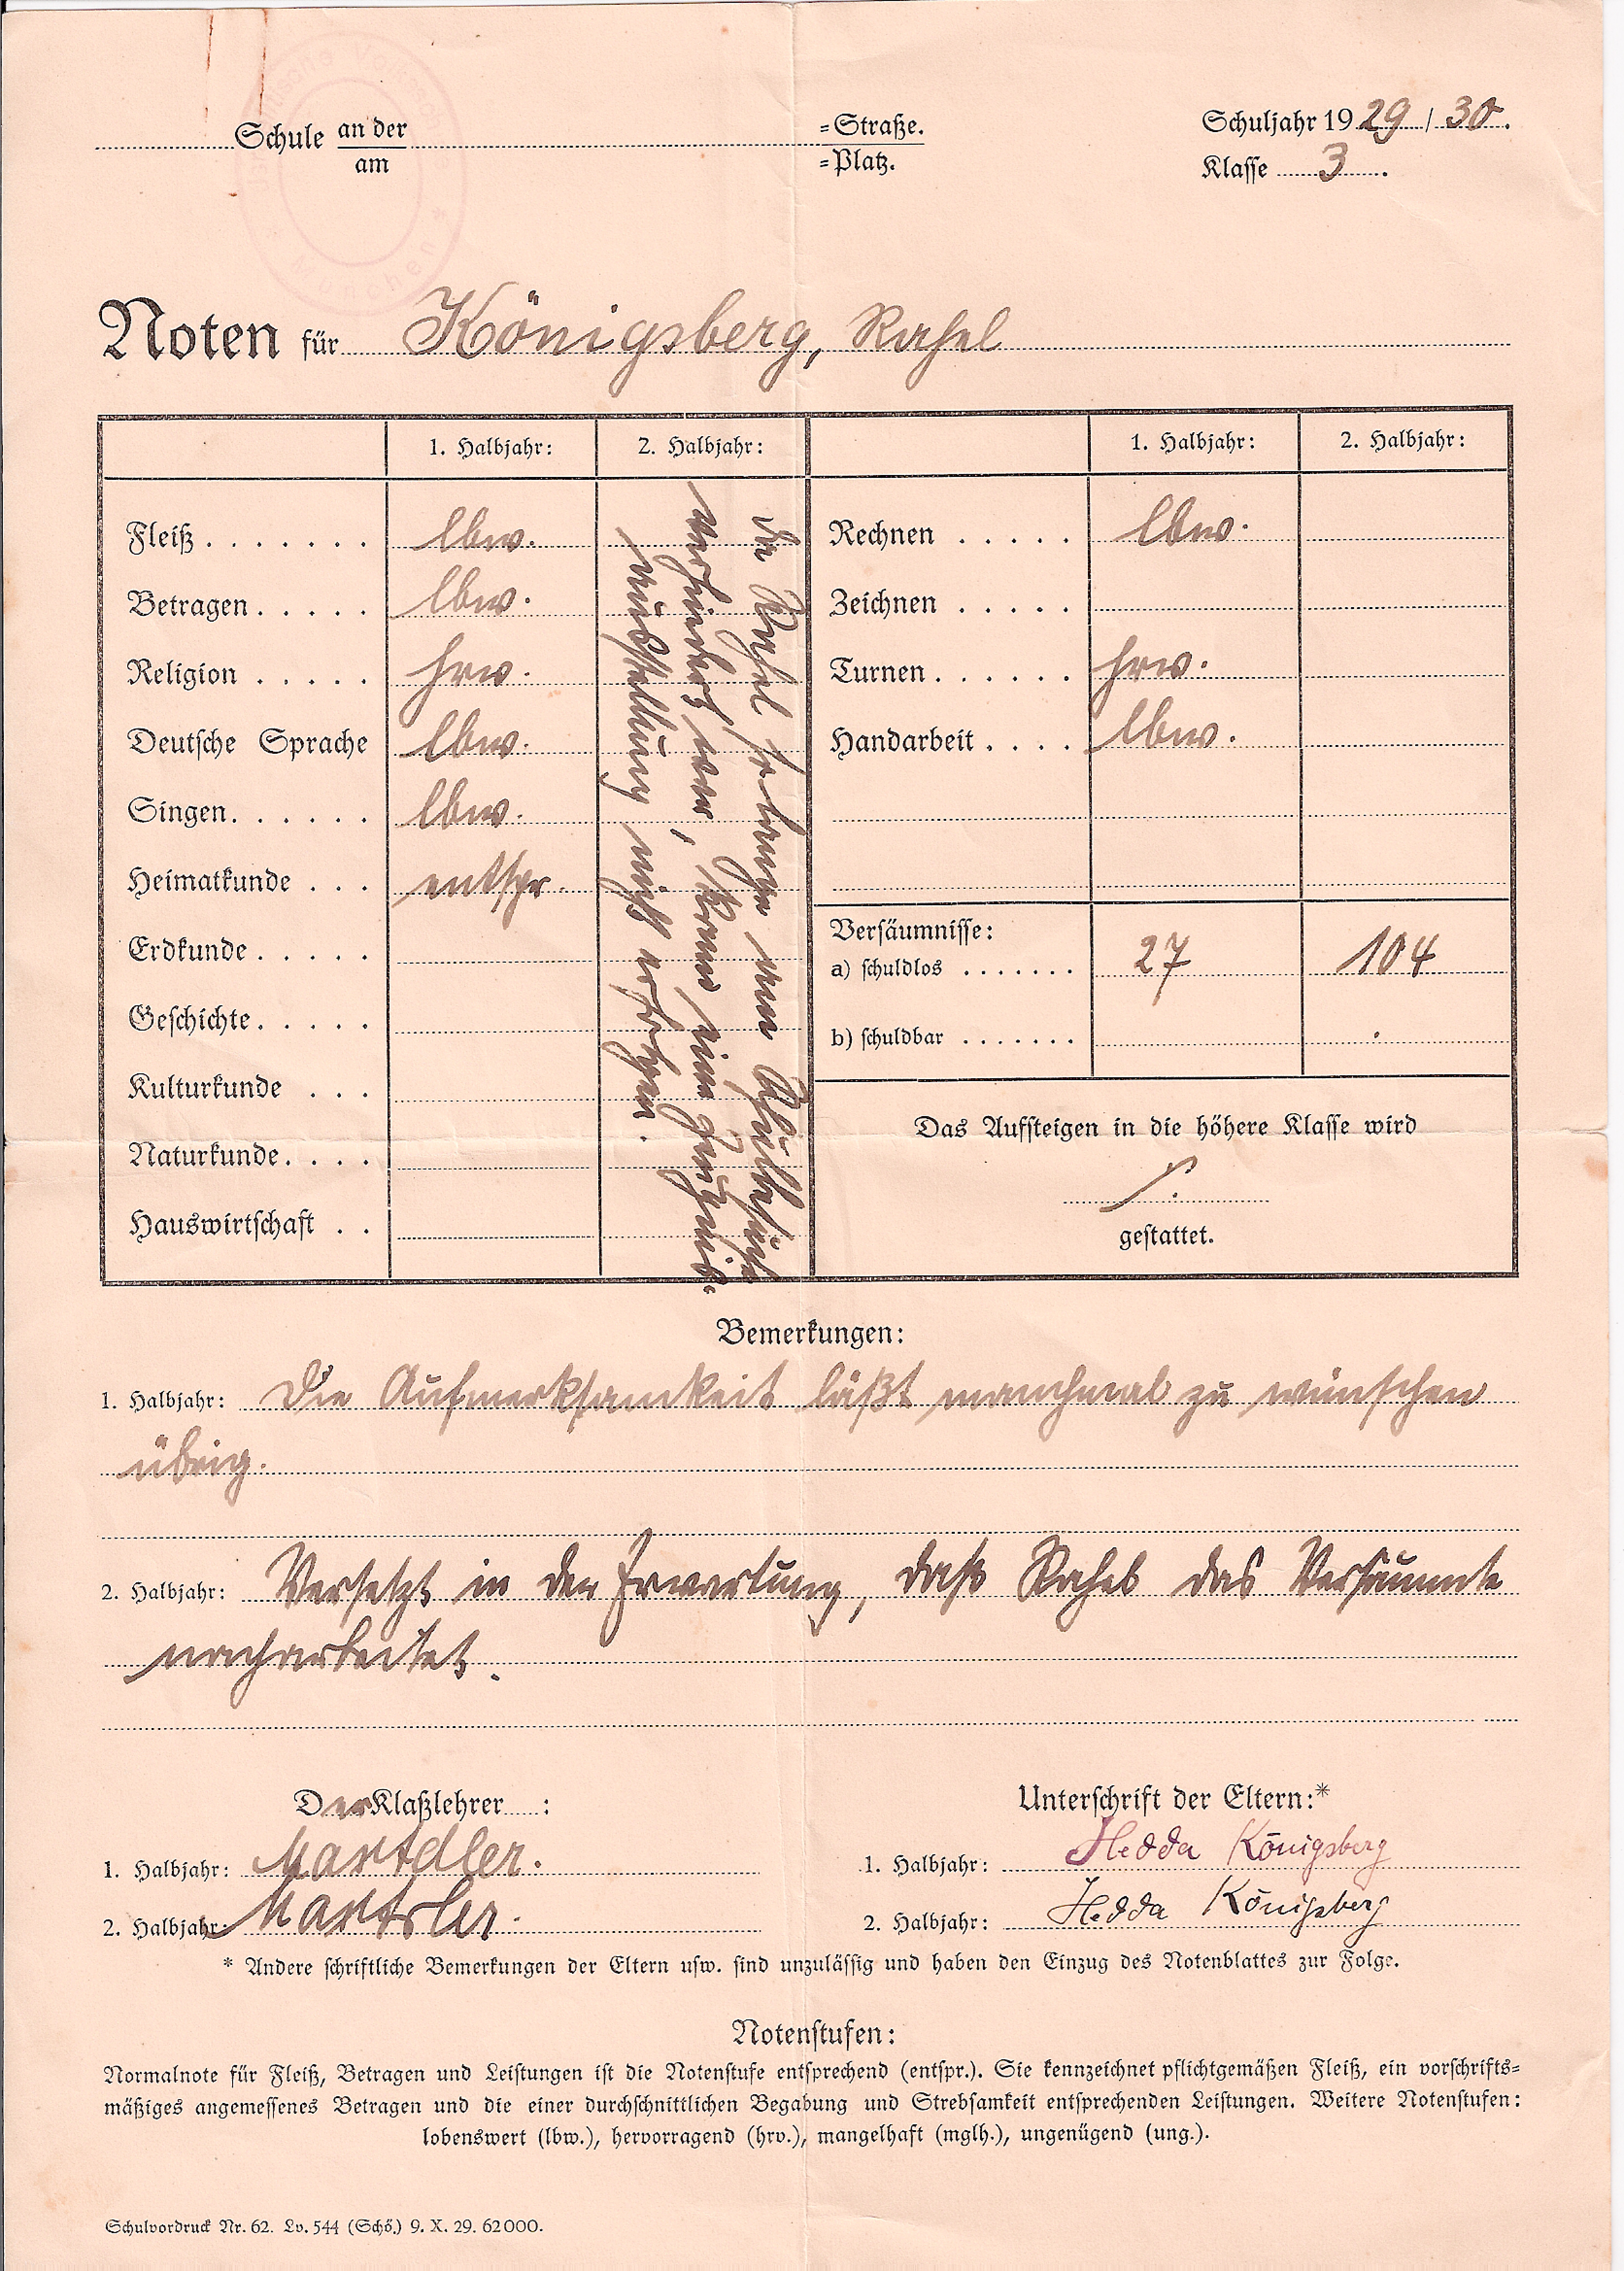 Schule an der / am =Straße. / =Platz.
Schuljahr 1929/30.
Klasse 3.
München
Noten für Königsberg, Rahel
1. Halbjahr: 2. Halbjahr: 1. Halbjahr: 2. Halbjahr:
Fleiß . . . . . . . lbw.
Betragen . . . . . lbw.
Religion . . . . . hrw.
Deutsche Sprache lbw.
Singen . . . . . . lbw.
Heimatkunde . . . entspr.
Erdkunde . . . . .
Geschichte . . . . .
Kulturkunde . . .
Naturkunde . . . .
Hauswirtschaft . .
Da Rahel so lange vom Schulbesuch
verhindert war, kann eine Zeugnis-
ausstellung nicht erfolgen.
Rechnen . . . . . lbw.
Zeichnen . . . . .
Turnen . . . . . . hrw.
Handarbeit . . . . lbw.
Versäumnisse:
a) schuldlos . . . . . . . 27 104
b) schuldbar . . . . . . . .
Das Aufsteigen in die höhere Klasse wird
gestattet.
Bemerkungen:
1. Halbjahr: Die Aufmerksamkeit läßt manchmal zu wünschen
übrig.
2. Halbjahr: Versetzt in der Erwartung, daß Rahel das Versäumte
nacharbeitet.
Der Klaßlehrer :
1. Halbjahr:
2. Halbjahr:
Unterschrift der Eltern:*
1. Halbjahr: Hedda Königsberg
2. Halbjahr: Hedda Königsberg
* Andere schriftliche Bemerkungen der Eltern usw. sind unzulässig und haben den Einzug des Notenblattes zur Folge.
Notenstufen:
Normalnote für Fleiß, Betragen und Leistungen ist die Notenstufe entsprechend (entspr.). Sie kennzeichnet pflichtgemäßen Fleiß, ein vorschrifts=
mäßiges angemessenes Betragen und die einer durchschnittlichen Begabung und Strebsamkeit entsprechenden Leistungen. Weitere Notenstufen:
lobenswert (lbw.), hervorragend (hrv.), mangelhaft (mglh.), ungenügend (ung.).
Schulvordruck Nr. 62. Lv. 544 (Schö.) 9. X. 29. 62000.